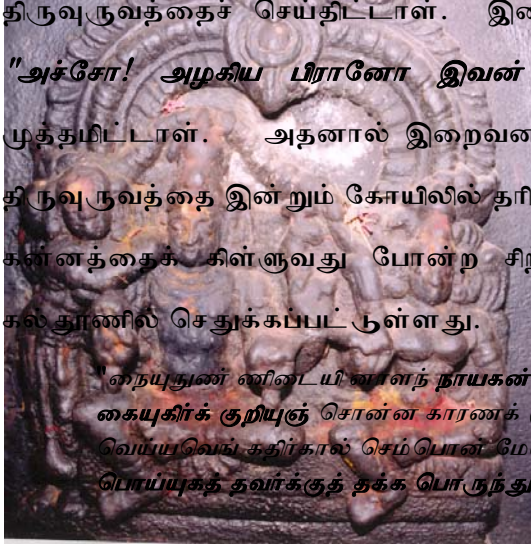 திருவுருவத்தைச் செய்திட்டாள். இ
"அச்சோ! அழகிய பிரானோ இவன்
முத்தமிட்டாள். அதனால் இறைவ
திருவுருவத்தை இன்றும் கோயிலில் தரி
கன்னத்தைக் கிள்ளுவது போன்ற சிற
கல்தூணில் செதுக்கப்பட்டுள்ளது.
"நையுநுண் ணிடையி னாளந் நாயகன்
கையுகிர்க் குறியுஞ் சொன்ன காரணக்
வெய்யவெங் கதிர்கால் செம்பொன் மே
பொய்யுகத் தவர்க்குத் தக்க பொருந்து